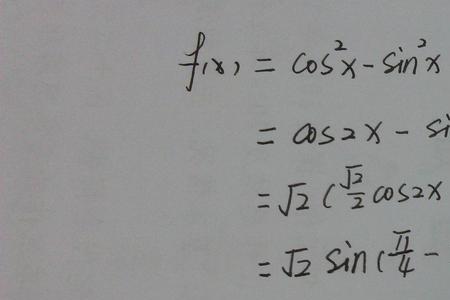 f(x) = cos²x - sin²x
= cos2x - si
= √2 (√2/2 cos2x
= √2 sin(π/4 -